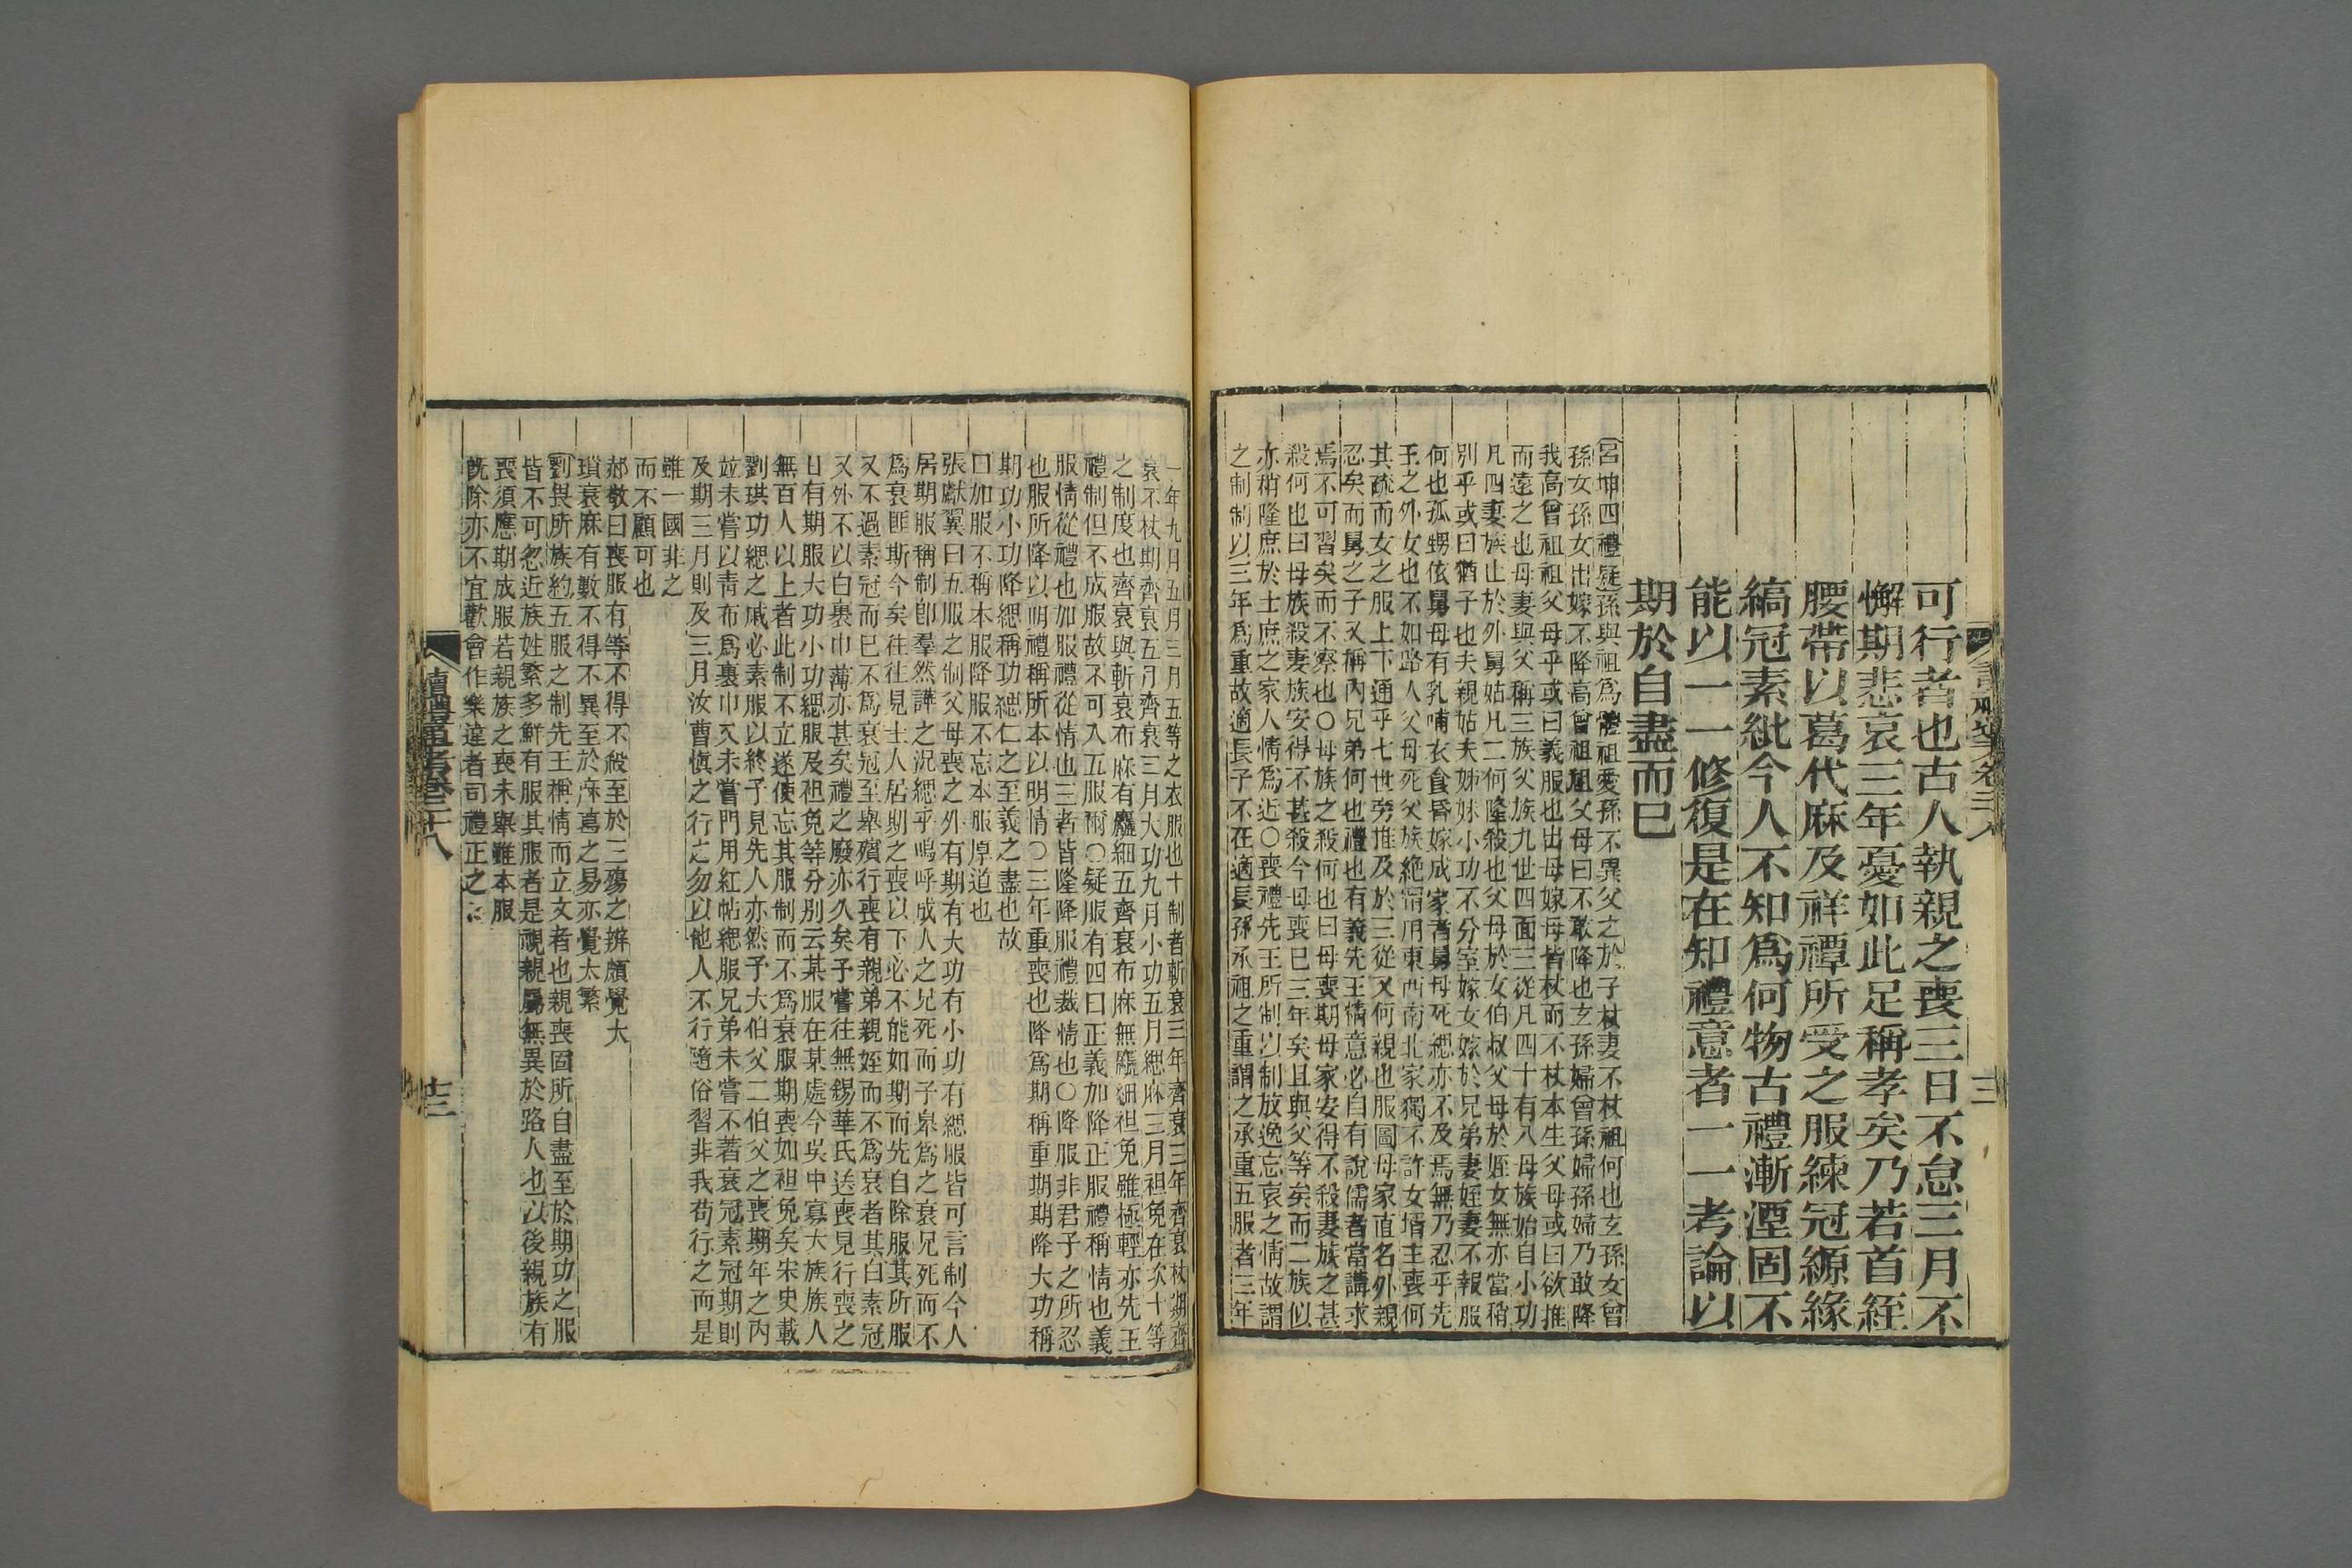 可行者也古人執親之喪三日不怠三月不
懈期悲哀三年憂如此足稱孝矣乃若首絰
腰帶以葛代麻及祥禫所受之服練冠縓緣
縞冠素紕今人不知爲何物古禮漸湮固不
能以一一修復是在知禮意者一一考論以
期於自盡而已
呂坤四禮疑孫與祖爲體祖愛孫不異父之於子杖妻不杖祖何也玄孫女曾
孫女孫女出嫁不降高曾祖祖父母曰不敢降也玄孫婦曾孫婦孫婦乃敢降
我高曾祖祖父母乎或曰義服也出母嫁母皆杖而不杖本生父母或曰欲推
而遠之也母妻與父稱三族父族九世四面三從凡四十有八母族始自小功
凡四妻族止於外舅姑凡二何隆殺也父母於女伯叔父母於姪女無亦當稍
別乎或曰猶子也夫親姑夫姊妹小功不分室嫁女嫁於兄弟妻姪妻不報服
何也孤甥依舅母有乳哺衣食昏嫁成家者舅母死緦亦不及焉無乃忍乎先
王之外女也不如路人父母死父族絶謂用東西南北家獨不許女壻主喪何
其疏而女之服上下通乎七世旁推及於三從又何親也服圖母家直名外親
忍矣而舅之子又稱內兄弟何也禮也有義先王情意必自有說儒者當講求
焉不可習矣而不察也〇母族之殺何也曰母喪期母家安得不殺妻族之甚
殺何也曰母族殺妻族安得不甚殺今母喪已三年矣且與父等矣而二族似
亦稍隆庶於士庶之家人情爲近〇喪禮先王所制以制放逸忘哀之情故謂
之制制以三年爲重故適長子不在適長孫承祖之重謂之承重五服者三年
一年九月五月三月五等之衣服也十制者斬衰三年齊衰三年齊衰杖期齊
衰不杖期齊衰五月齊衰三月大功九月小功五月緦麻三月袒免在次十等
之制度也齊衰與斬衰布麻有麤細五齊衰布麻無麤細袒免雖極輕亦先王
禮制但不成服故不可入五服爾〇疑服有四曰正義加降正服禮稱情也義
服情從禮也加服禮從情也三者皆隆降服禮裁情也〇降服非君子之所忍
也服所降以明禮稱所本以明情〇三年重喪也降爲期稱重期期降大功稱
期功小功降緦稱功緦仁之至義之盡也故
曰加服不稱本服降服不忘本服厚道也
張獻翼曰五服之制父母喪之外有期有大功有小功有緦服皆可言制今人
居期服稱制卽羣然譁之況緦乎嗚呼成人之兄死而子皋爲之衰兄死而不
爲衰匪斯今矣往往見士人居期之喪以下必不能如期而先自除服其所服
又不過素冠而已不爲衰冠至舉殯行喪有親弟親姪而不爲衰者其白素冠
又外不以白裹巾薄亦甚矣禮之廢亦久矣予嘗往無錫華氏送喪見行喪之
日有期服大功小功緦服及袒免等分別云某服在某處今吳中寡大族族人
無百人以上者此制不立遂使忘其服制而不爲衰服期喪如袒免矣宋史載
劉珙功緦之戚必素服以終予見先人亦然予大伯父二伯父之喪期年之內
並未嘗以靑布爲裹巾又未嘗門用紅帖緦服兄弟未嘗不著衰冠素冠期則
及期三月則及三月汝曹愼之行之勿以他人不行隨俗習非我苟行之而是
雖一國非之
而不顧可也
郝敬曰喪服有等不得不殺至於三殤之辨頗覺大
瑣衰麻有數不得不異至於麻葛之易亦覺太繁
劉畏所族約五服之制先王稱情而立文者也親喪固所自盡至於期功之服
皆不可忽近族姓繁多鮮有服其服者是視親屬無異於路人也以後親族有
喪須應期成服若親族之喪未舉雖本服
旣除亦不宜歡會作樂違者司禮正之
讀禮通考卷三十八